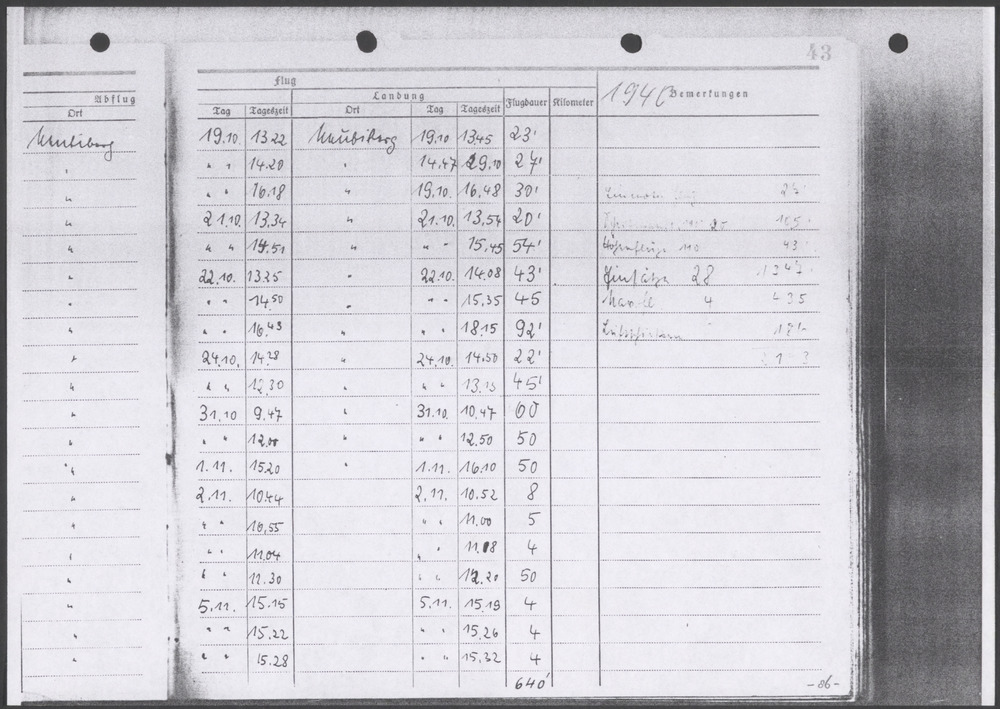 43
Flug
Abflug Landung Flugdauer Kilometer 1940 Bemerkungen
Ort Tag Tageszeit Ort Tag Tageszeit
Neubiberg 19.10. 13 22 Neubiberg 19.10 13.45 23'
" " " 14.20 " 14.47 29.10 27'
" " " 16.18 " 19.10. 16.48 30'
" 21.10. 13.34 " 21.10. 13.54 20'
" " " 14.51 " " " 15.45 54' Höhenflüge 43
" 22.10. 13.25 " 22.10. 14.08 43' Einsätze 28 1347
" " " 14.50 " " " 15.35 45 4 435
" " " 16.43 " " " 18.15 92'
" 24.10. 14.28 " 24.10. 14.50 22'
" " " 12.30 " " " 13.15 45'
" 31.10 9.47 " 31.10. 10.47 60
" " " 12.00 " " " 12.50 50
" 1.11. 15.20 " 1.11. 16.10 50
" 2.11. 10.44 2.11. 10.52 8
" " " 10.55 " " 11.00 5
" " " 11.04 " " 11.08 4
" " " 11.30 " " 12.20 50
" 5.11. 15.15 5.11. 15.19 4
" " " 15.22 " " 15.26 4
" " " 15.28 " " 15.32 4
640'
-86-